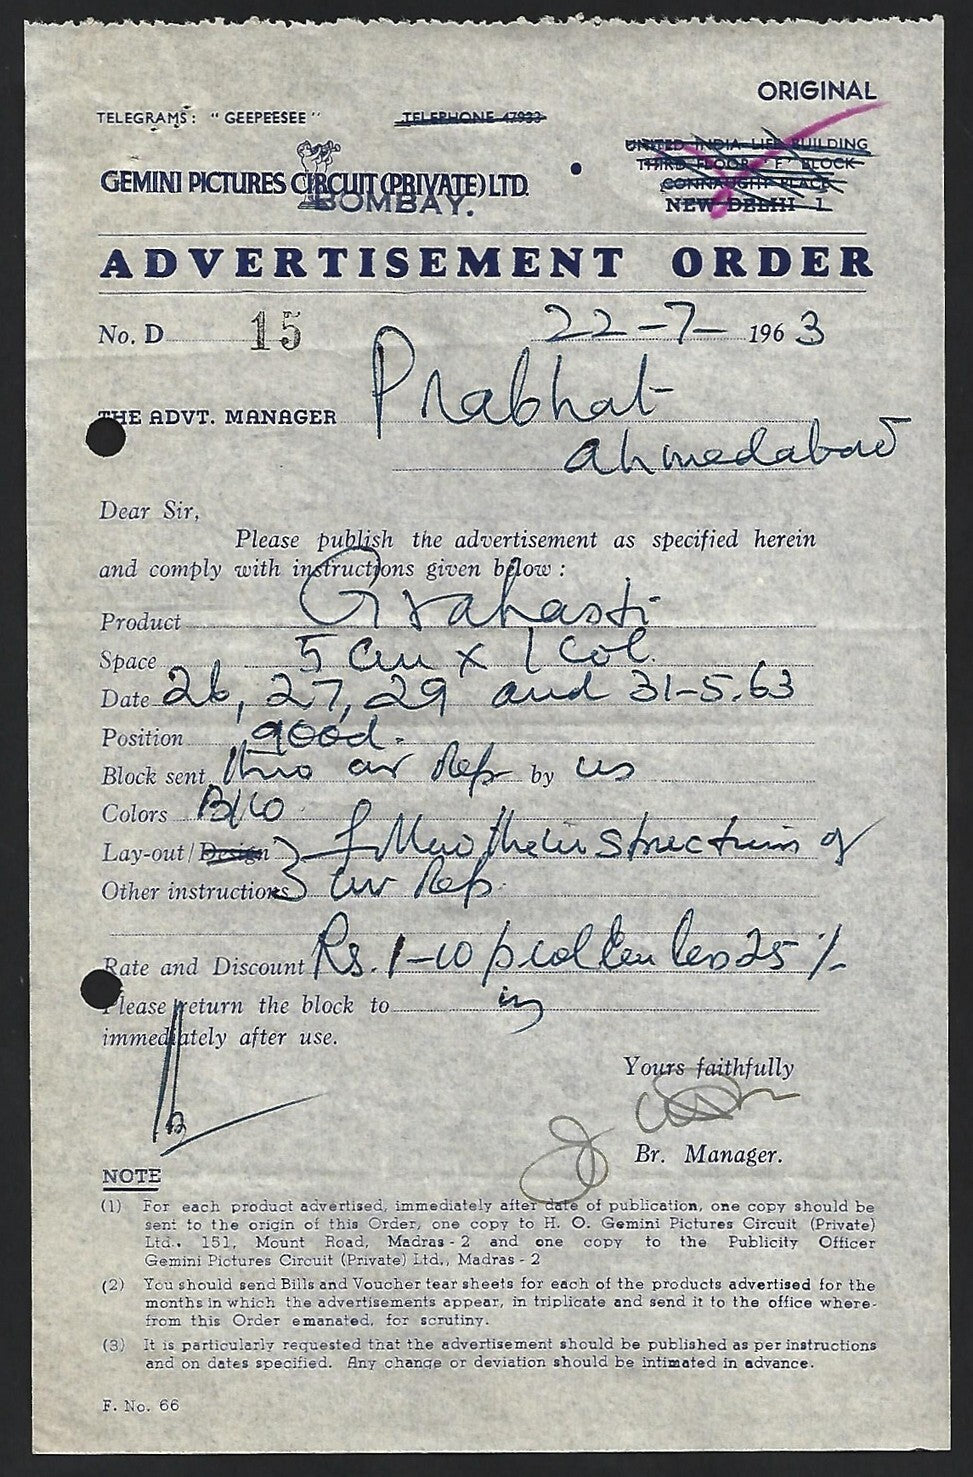 ORIGINAL
TELEGRAMS: "GEEPEESEE" TELEPHONE 47933
UNITED INDIA LIFE BUILDING
THIRD FLOOR, "F" BLOCK
CONNAUGHT PLACE
NEW DELHI 1
GEMINI PICTURES CIRCUIT (PRIVATE) LTD.
BOMBAY.
ADVERTISEMENT ORDER
No. D 15 22-7- 1963
THE ADVT. MANAGER Prabhat
Ahmedabad
Dear Sir,
Please publish the advertisement as specified herein
and comply with instructions given below:
Product Grahasti
Space 5 cm x 1 Col.
Date 26, 27, 29 and 31-5.63
Position good.
Block sent thro our Rep by us
Colors B/W
Lay-out/Design follow the instructions of
Other instructions our Rep.
Rate and Discount Rs. 1-10 less 25 %
Please return the block to
immediately after use.
Yours faithfully
Br. Manager.
NOTE
(1) For each product advertised, immediately after date of publication, one copy should be
sent to the origin of this Order, one copy to H. O. Gemini Pictures Circuit (Private)
Ltd., 151, Mount Road, Madras-2 and one copy to the Publicity Officer
Gemini Pictures Circuit (Private) Ltd., Madras-2
(2) You should send Bills and Voucher tear sheets for each of the products advertised for the
months in which the advertisements appear, in triplicate and send it to the office where-
from this Order emanated, for scrutiny.
(3) It is particularly requested that the advertisement should be published as per instructions
and on dates specified. Any change or deviation should be intimated in advance.
F. No. 66